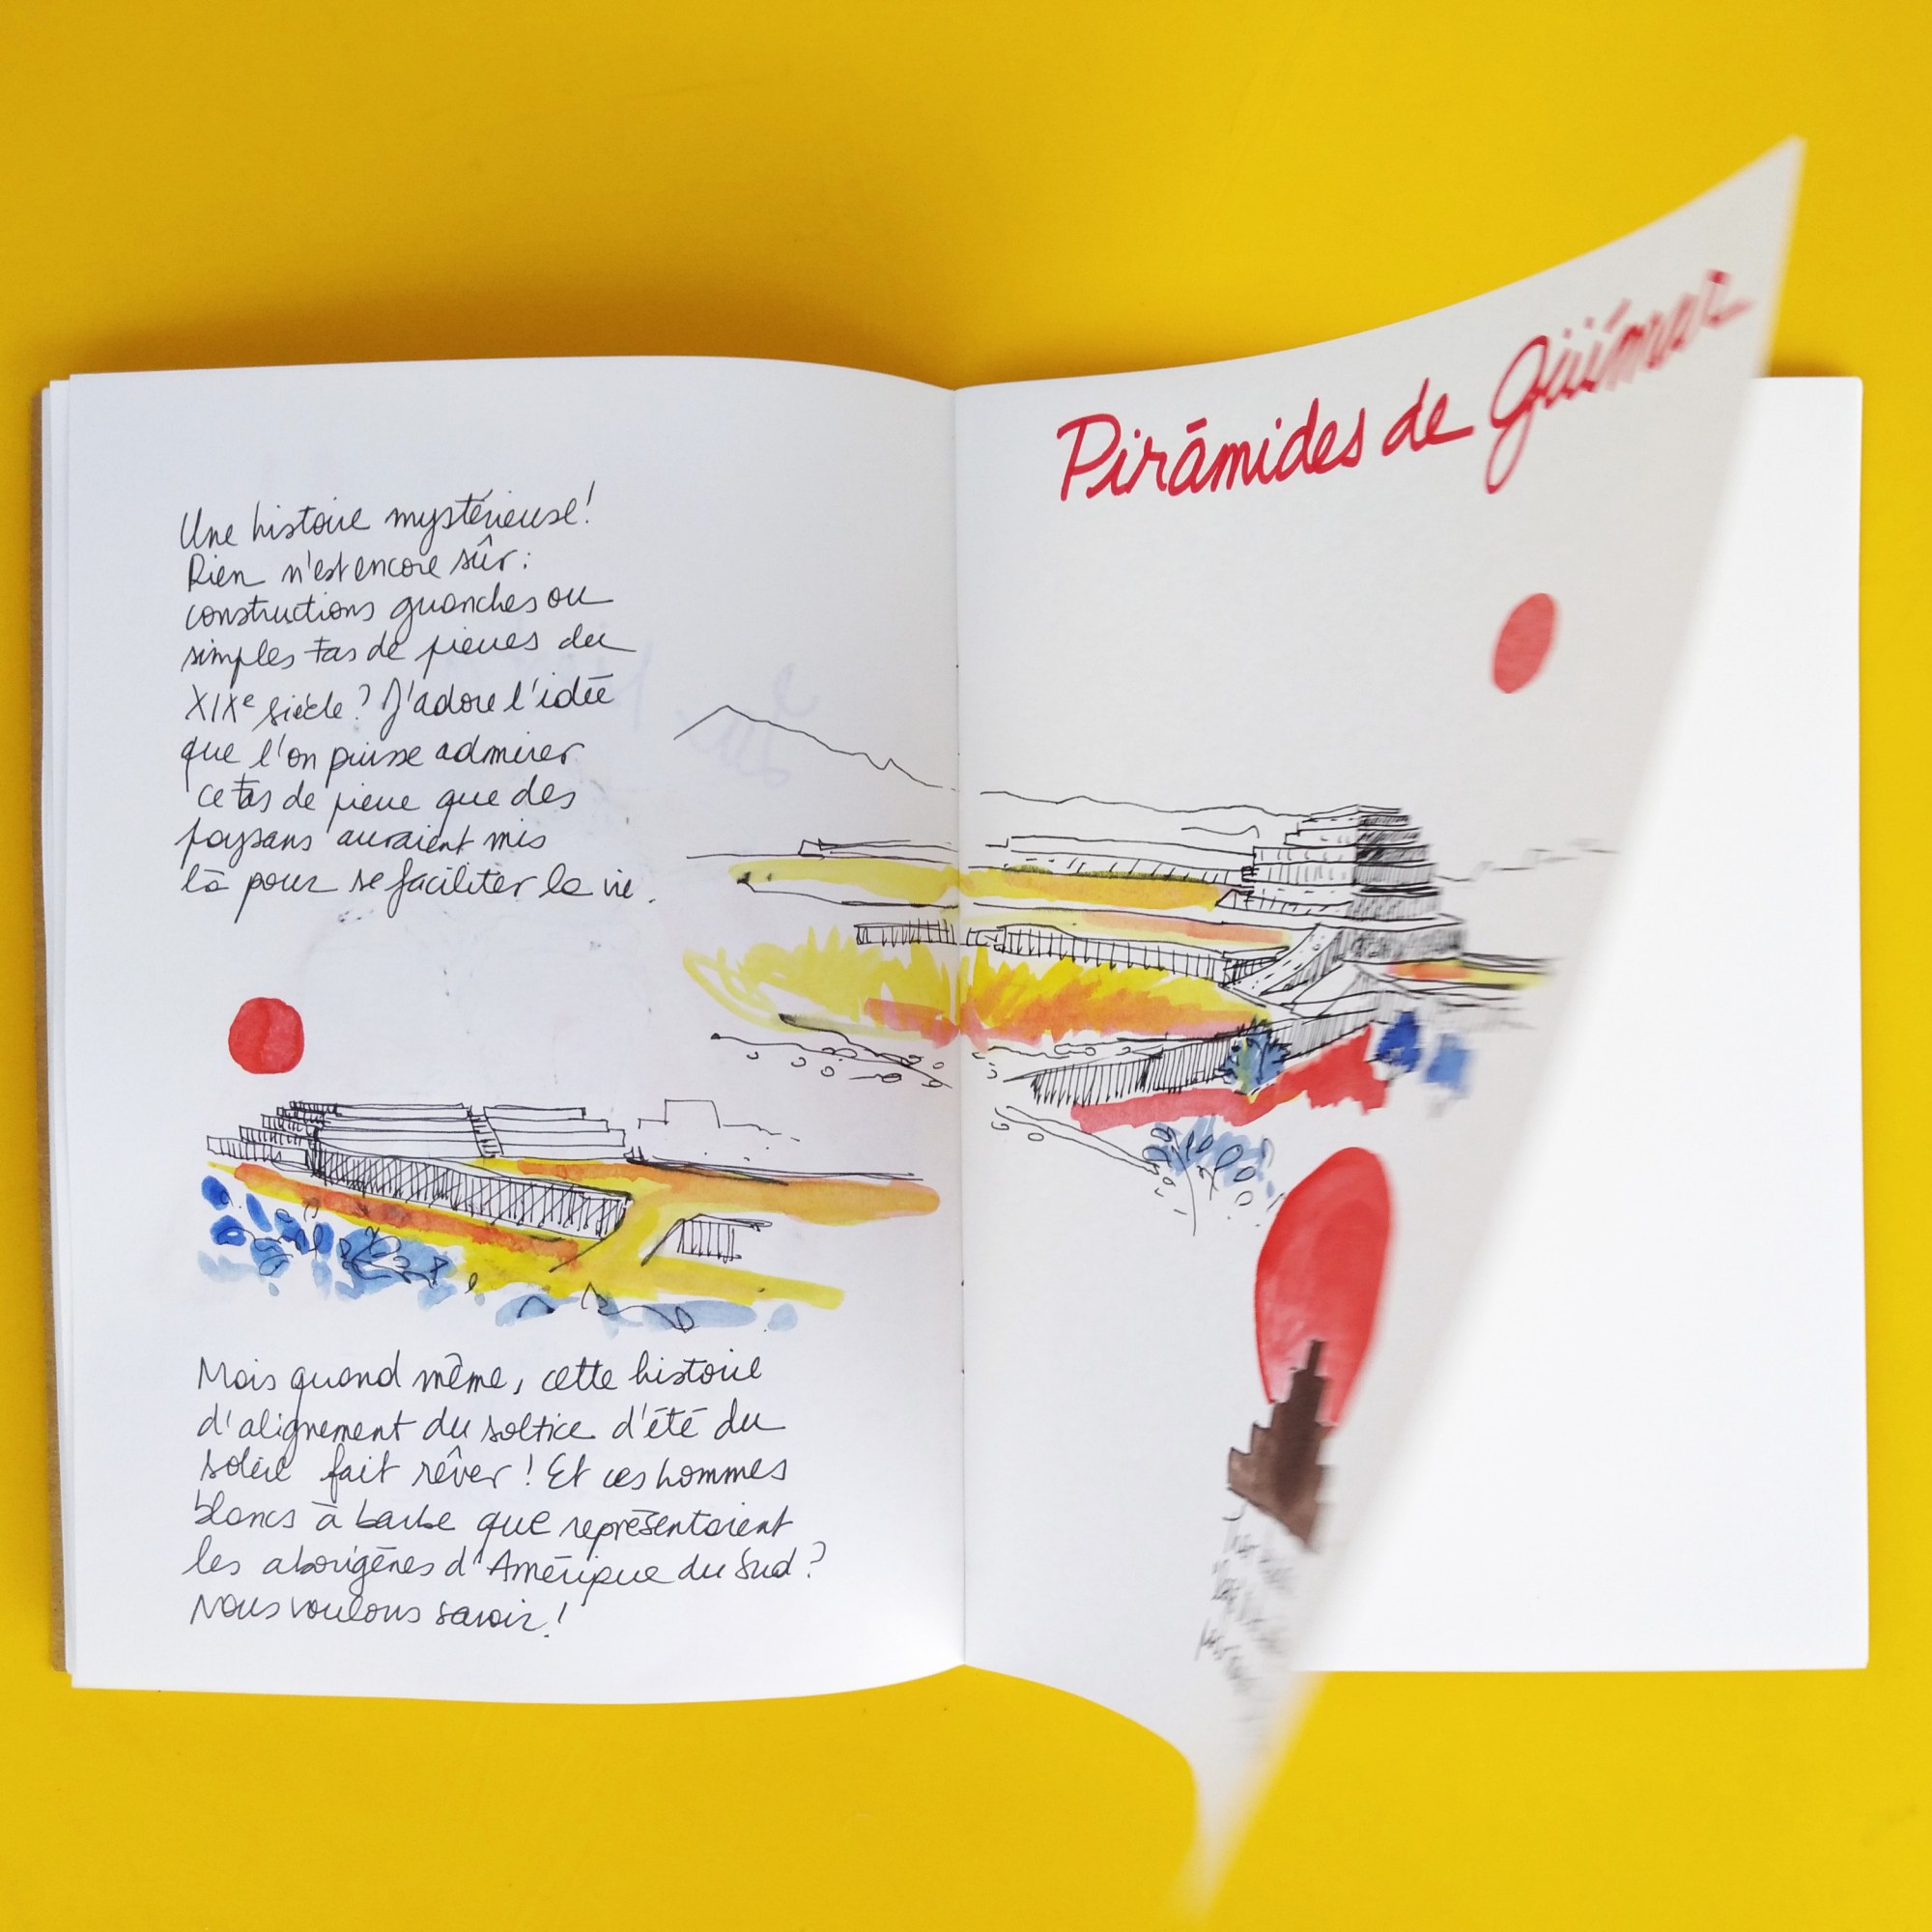 Une histoire mystérieuse!
Rien n'est encore sûr:
constructions guanches ou
simples tas de pierres du
XIXe siècle? J'adore l'idée
que l'on puisse admirer
ce tas de pierre que des
paysans auraient mis
là pour se faciliter la vie.
Mais quand même, cette histoire
d'alignement du soltice d'été du
soleil fait rêver! Et ces hommes
blancs à barbe que représentaient
les aborigènes d'Amérique du Sud?
Nous voulons savoir!
Pirámides de Güímar